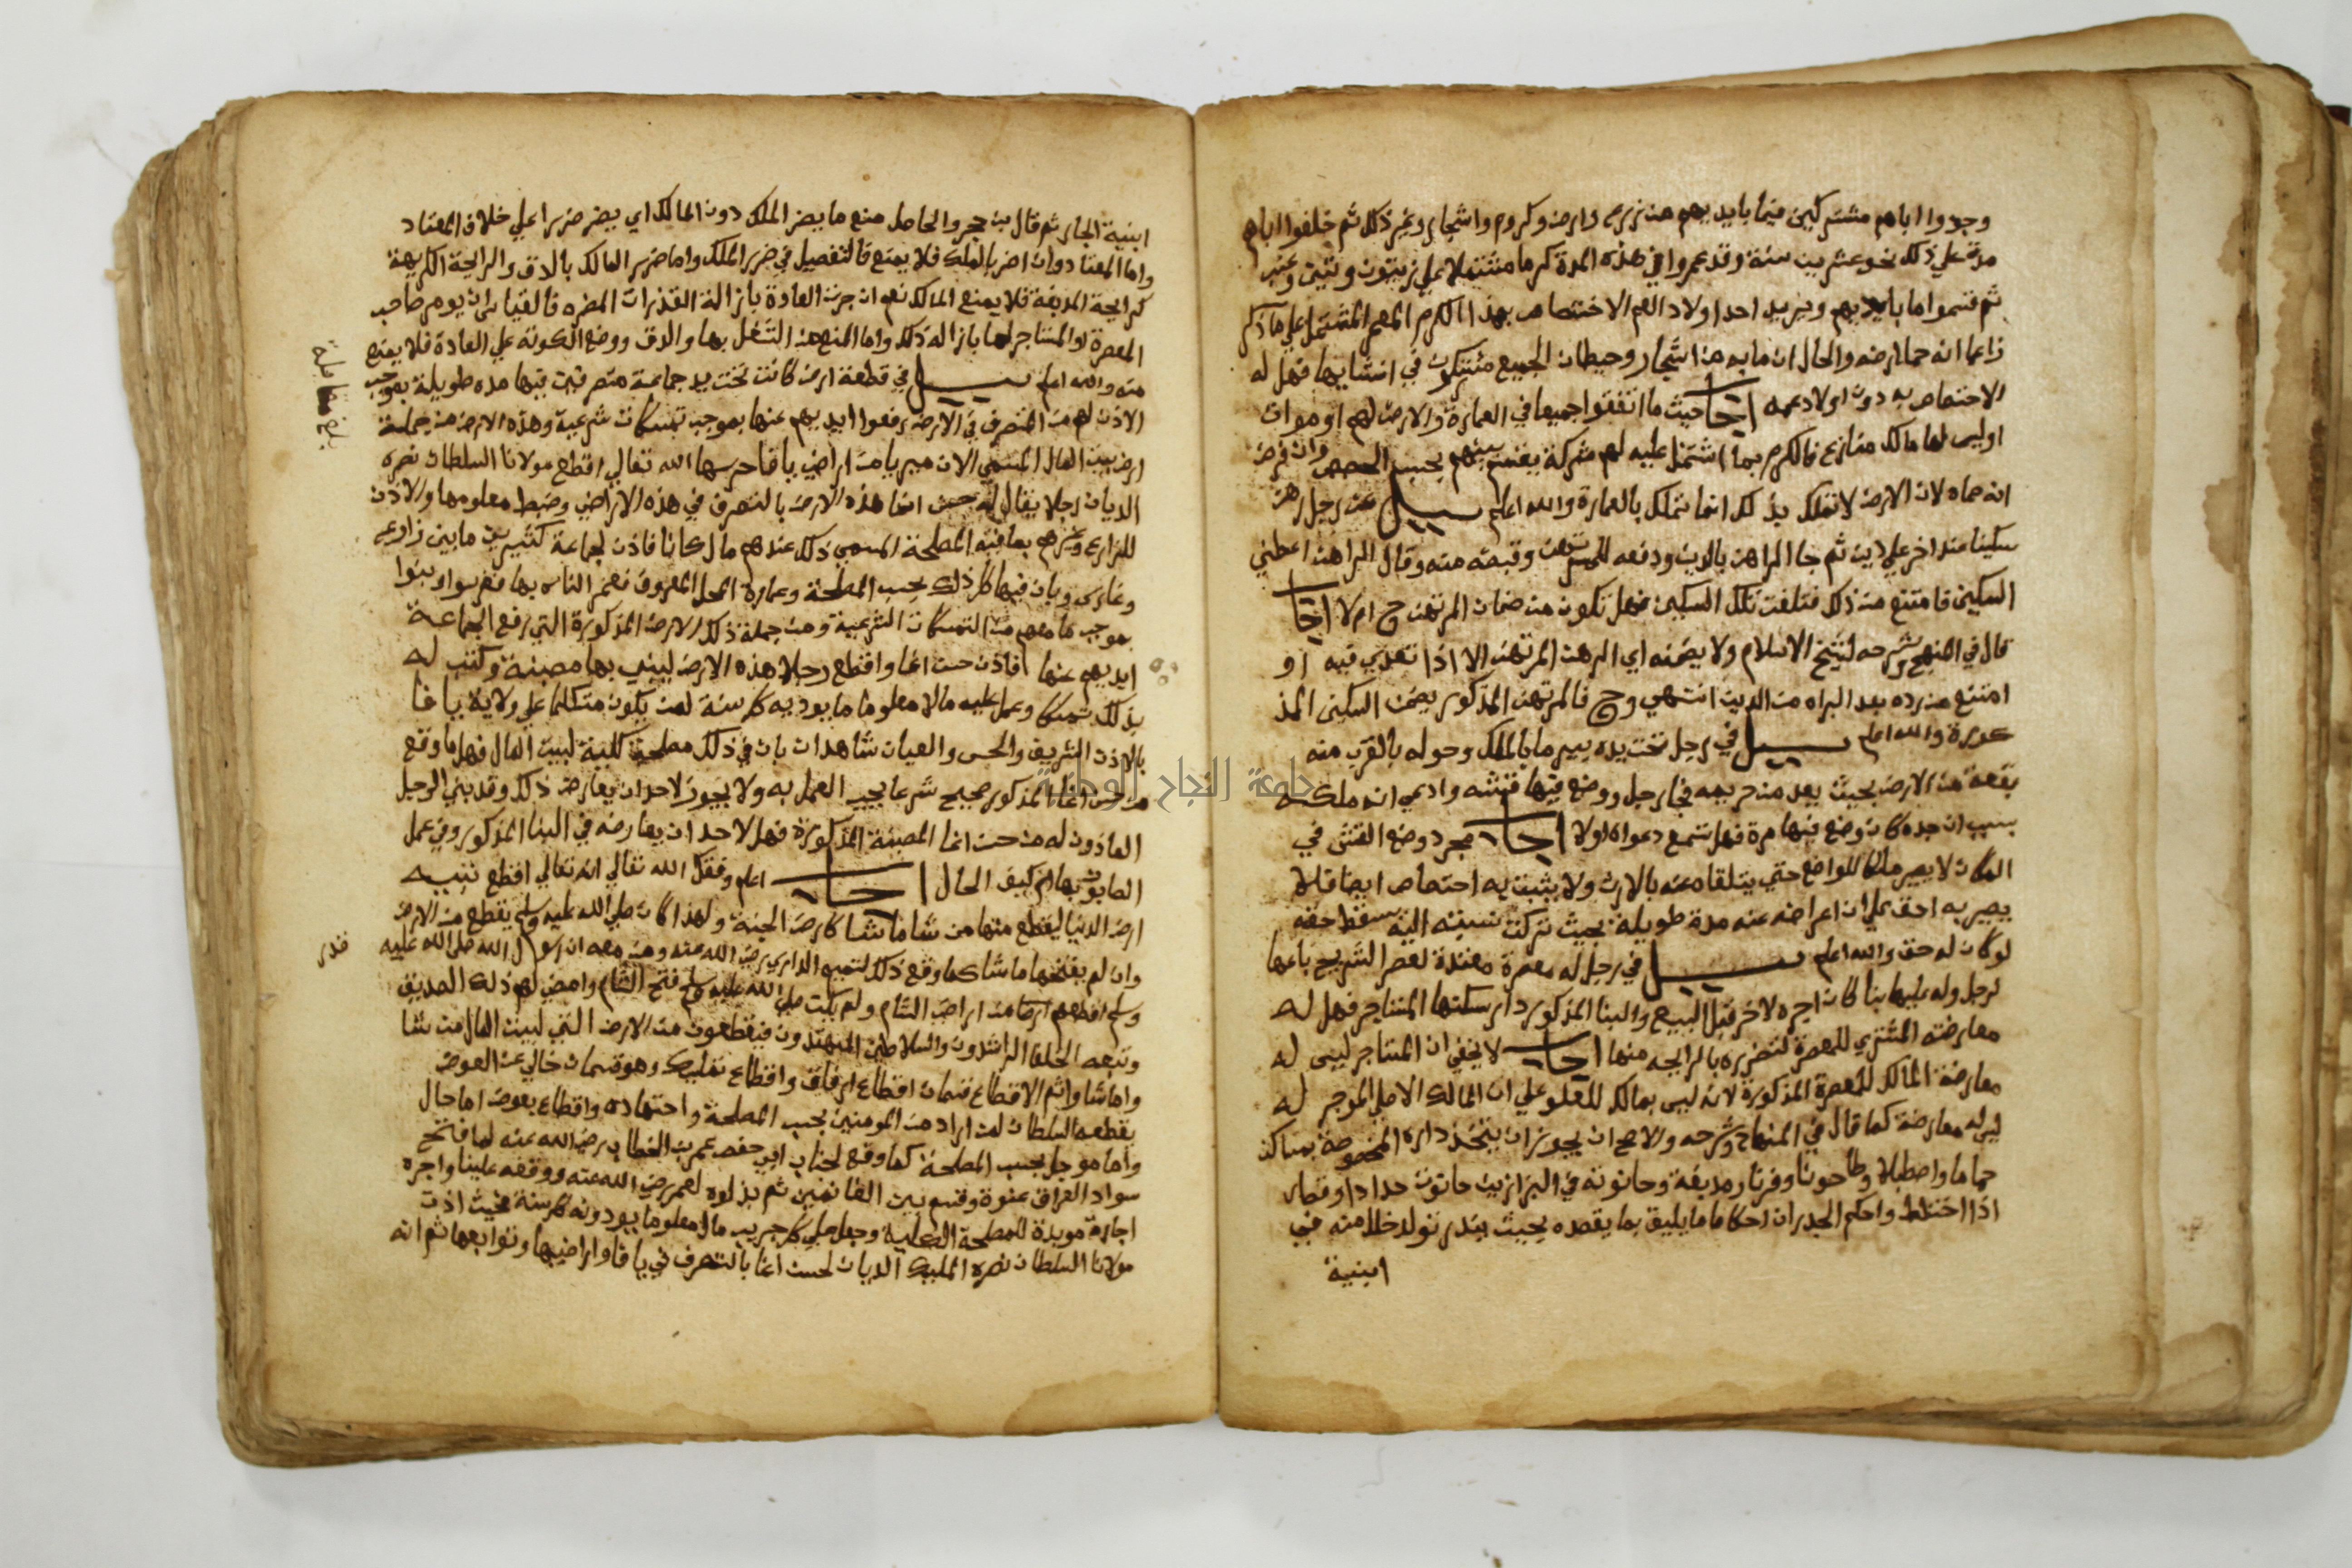 وجدوا اباهم مشتركين فيما بايديهم من زرع وارض وكروم واشجار وغير ذلك ثم خلفوا اباهم
مدة علي ذلك نحو عشرين سنة وقد عمروا في هذه المدة كرما مشتملا علي زيتون وتين وعنب
ثم قسموا ما بايديهم ويريد احد اولاد العم الاختصاص بهذا الكرم المعمر المشتمل علي ما ذكر
زاعما انه حما ارضه والحال ان ما به من اشجار وحيطان الجميع مشتركون في انشايها فهل له
الاختصاص به دون اولاد عمه اجاب حيث ما اتفقوا جميعا في العمارة والارض لهم او موات
او ليس لها مالك منازع فالكرم بما اشتمل عليه لهم شركة يقسم بينهم بحسب الحصص وان فرض
انه حماه لان الارض لا تملك بذلك انما تملك بالعمارة والله اعلم سيل عن رجل رهن
سكينا عند اخر علي دين ثم جا الراهن بالدين ودفعه للمرتهن وقبضه منه وقال الراهن اعطني
السكين فامتنع من ذلك فتلفت تلك السكين فهل تكون من ضمان المرتهن ح ام لا اجاب
قال في المنهج وشرحه لشيخ الاسلام ولا يضمنه اي الرهن المرتهن الا اذا تعدي فيه او
امتنع من رده بعد البراه من الدين انتهي وح فالمرتهن المذكور يضمن السكين المذ
كورة والله اعلم سيل في رجل تحت يده بير ما بالملك وحوله بالقرب منه
بقعة من الارض بحيث يعد من حريمه فجا رجل ووضع فيها قتشه وادعي انه ملكه
بسبب ان جده كان وضع فيها مرة فهل تسمع دعواه اولا اجاب مجرد وضع القتش في
المكان لا يصير ملكا للواضع حتي يتلقاه عنه بالارث ولا يثبت به اختصاص ايضا فلا
يصير به احق علي ان اعراضه عنه مدة طويلة بحيث تركت نسبته اليه سقط حقه
لو كان له حق والله اعلم سيل في رجل له معصرة معتدة لعصر الشيرج باعها
لرجل وله عليها بنا كان اجره لاخر قبل البيع والبنا المذكور دار سكنها المستاجر فهل له
معارضته المشتري للمعصرة لتضرره بالرايحه منها اجاب لا يخفي ان المستاجر ليس له
معارضة المالك للمعصرة المذكورة لانه ليس بمالك للعلو علي ان المالك الاصلي الموجر له
ليس له معارضة كما قال في المنهاج وشرحه والاصح انه يجوز ان يتخذ داره المحفوفة بمساكن
حماما واصطبلا وطاحونا وفرنا ومدبغة وحانوته في البزازين حانوت حداد وقصار
اذا احتاط واحكم الجدران احكاما ما يليق بما يقصده بحيث يندر تولد خلل منه في
ابنية
ابنية الجار ثم قال بن حجر والحاصل منع ما يضر الملك دون المالك اي يضر ضررا علي خلاف المعتاد
واما المعتاد وان اضر بالملك فلا يمنع فالتفصيل في ضرر الملك واما ضرر المالك بالدق والرايحة الكريهة
كرايحة المدبغة فلا يمنع المالك نعم ان جرت العادة بازالة القذرات المضره فالقياس ان يومر صاحب
المعصرة او المستاجر لها بازالة ذلك واما المنع من الشغل بها والدق ووضع الكونة علي العادة فلا يمنع
منه والله اعلم سيل في قطعة ارض كانت تحت يد جماعة متصرفين فيها مده طويلة بموجب
الاذن لهم من المتصرف في الارض رفعوا ايديهم عنها بموجب تمسكات شرعية وهذه الارض من جملة
ارض بيت المال المسمي الان ميريا من اراضي يافا حرسها الله تعالي اقطع مولانا السلطان نصره
الديان رجلا يقال له حسن اغا هذه الارض بالتصرف في هذه الاراضي وضبط معلومها والاذن
للمزارع وغيرهم بما فيه المصلحة المسمي ذلك عندهم مالكانا فاذن لجماعة كثيرين ما بين زارع
وغارس وبان فيها كل ذلك بحسب المصلحة وعمارة المحل المعروف فعمر الناس بها فغرسوا وبنوا
بموجب ما معهم من التمسكات الشرعية ومن جملة ذلك الارض المذكورة التي رفع الجماعة
ايديهم عنها فاذن حسن اغا واقطع رجلا هذه الارض ليبني بها مصبنة وكتب له
بذلك تمسكا وعمل عليه مالا معلوما ما يوديه كل سنة لمن يكون متكلما علي ولاية يافا
بالاذن الشريف والحس والعيان شاهدان بان في ذلك مصلحة كلية لبيت المال فهل ما وقع
من حسن اغا المذكور صحيح شرعا يجب العمل به ولا يجوز لاحد ان يعارض ذلك وقد بني الرجل
الماذون له من حسن اغا المصبنة المذكورة فهل لاحد ان يعارضه في البنا المذكور وفي عمل
الصابون بها ام كيف الحال اجاب اعلم وفقك الله تعالي انه تعالي اقطع نبيه
ارض الدنيا ليقطع منها من شا ما شا كارض الجنة ولهذا كان صلي الله عليه وسلم يقطع من الارض
وان لم يفتحها ما شا كما وقع ذلك لتميم الداري رضي الله عنه ومن معه ان رسول الله صلي الله عليه
وسلم اقطعهم ارضا من اراض الشام ولم يكن صلي الله عليه وسلم فتح الشام وامضي لهم ذلك الصديق
وتبعه الخلفا الراشدون والسلاطين المهتدون فيقطعون من الارض التي لبيت المال من شا
وا ما شاوا ثم الاقطاع قسمان اقطاع ارفاق واقطاع تمليك وهو قسمان خالي عن العوض
يقطعه السلطان لمن اراد من المومنين بحسب المصلحة واجتهاده واقطاع بعوض اما حال
واما موجل بحسب المصلحة كما وقع لجناب ابي حفص عمر بن الخطاب رضي الله عنه لما فتح
سواد العراق عنوة وقسم بين الغانمين ثم بذلوه لعمر رضي الله عنه ووقفه علينا واجره
اجارة موبدة للمصلحة الكلية وجعل علي كل جريب مالا معلوما يودونه كل سنة فحيث اذن
مولانا السلطان نصره المليك الديان لحسن اغا بالتصرف في يافا واراضيها وتوابعها ثم انه